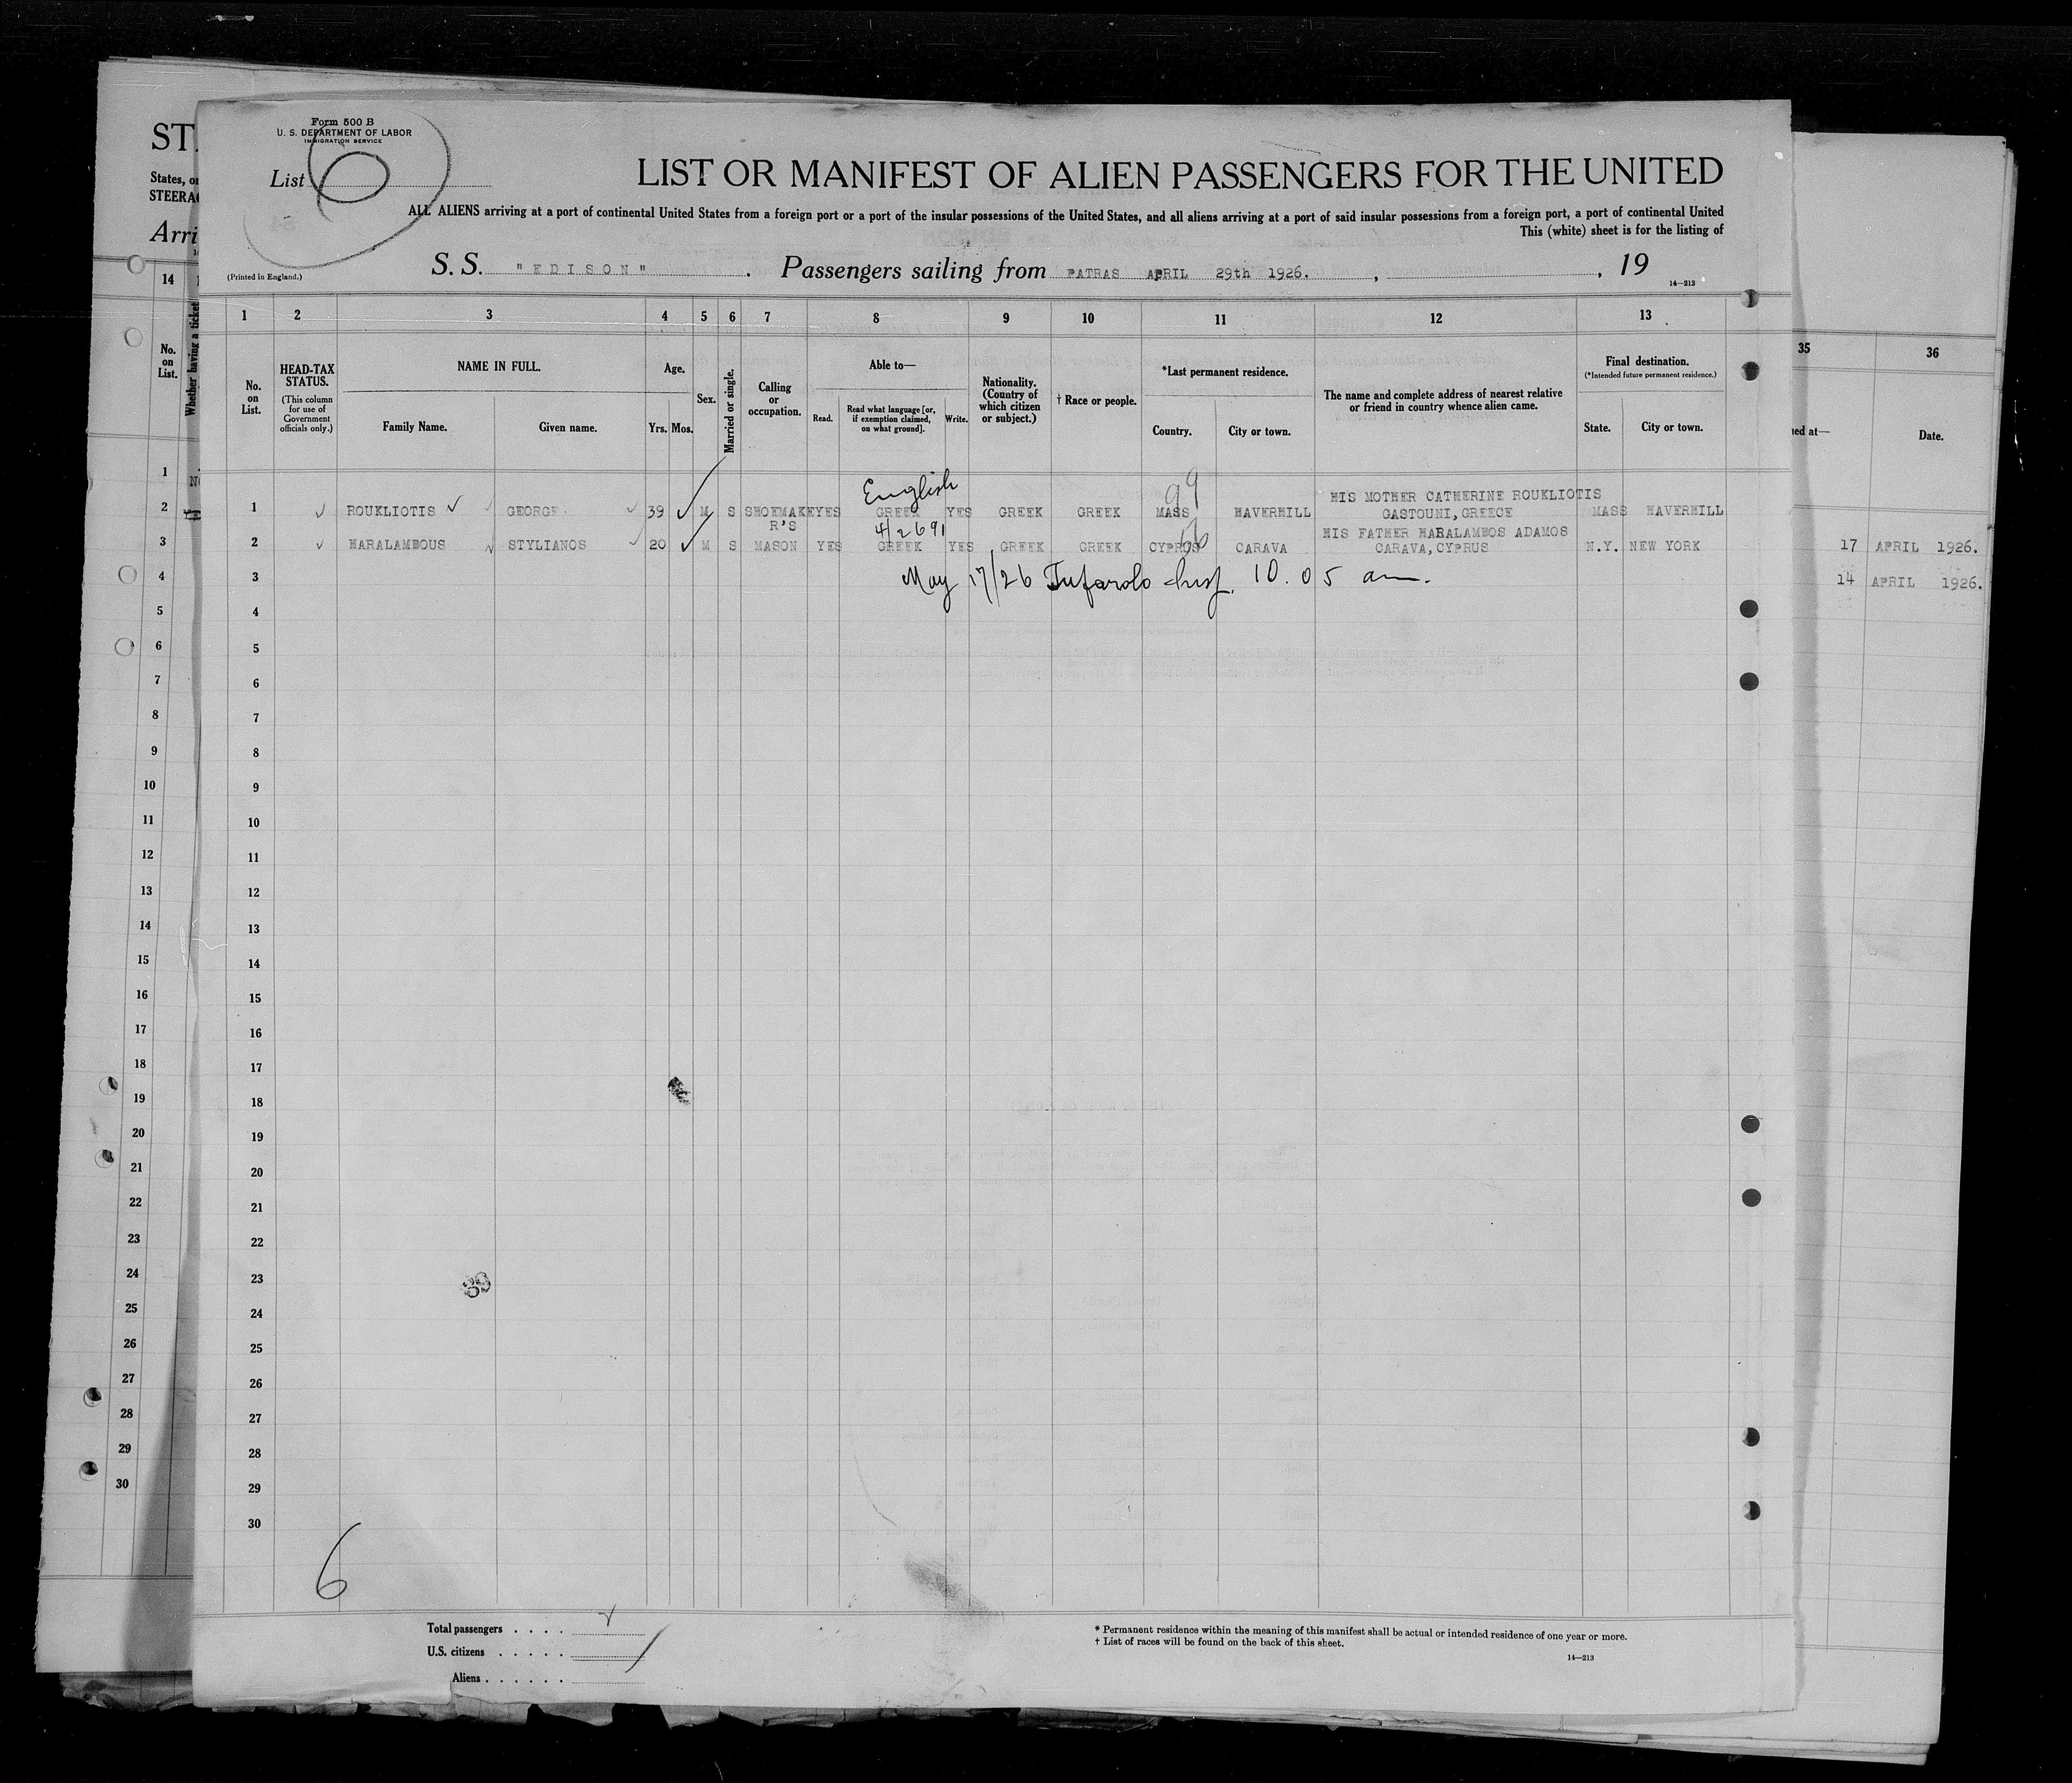 Form 500 B
U. S. DEPARTMENT OF LABOR
IMMIGRATION SERVICE
List 6
LIST OR MANIFEST OF ALIEN PASSENGERS FOR THE UNITED
ALL ALIENS arriving at a port of continental United States from a foreign port or a port of the insular possessions of the United States, and all aliens arriving at a port of said insular possessions from a foreign port, a port of continental United
This (white) sheet is for the listing of
(Printed in England.)
S. S. "EDISON". Passengers sailing from PATRAS APRIL 29th 1926. , , 19
14—213
1 2 3 4 5 6 7 8 9 10 11 12 13
No. on List.
HEAD-TAX STATUS.
(This column for use of Government officials only.)
NAME IN FULL.
Family Name. Given name.
Age.
Yrs. Mos.
Sex.
Married or single.
Calling or occupation.
Able to—
Read. Read what language [or, if exemption claimed, on what ground]. Write.
Nationality. (Country of which citizen or subject.)
† Race or people.
*Last permanent residence.
Country. City or town.
The name and complete address of nearest relative or friend in country whence alien came.
Final destination.
(*Intended future permanent residence.)
State. City or town.
English 99 HIS MOTHER CATHERINE ROUKLIOTIS
1 ROUKLIOTIS GEORGE 39 M S SHOEMAKE YES GREEK YES GREEK GREEK MASS HAVERHILL GASTOUNI, GREECE MASS HAVERHILL
R'S 4/2691 HIS FATHER HARALAMBOS ADAMOS
2 HARALAMBOUS STYLIANOS 20 M S MASON YES GREEK YES GREEK GREEK CYPROS CARAVA CARAVA, CYPRUS N.Y. NEW YORK
3 May 17/26 10.05 am.
4
5
6
7
8
9
10
11
12
13
14
15
16
17
18
19
20
21
22
23
24
25
26
27
28
29
30
6
Total passengers . . . .
U.S. citizens . . . . .
Aliens . . . . . .
* Permanent residence within the meaning of this manifest shall be actual or intended residence of one year or more.
† List of races will be found on the back of this sheet.
14—213
ST
States, or
STEERA
Arri
14
No. on List.
Whether having a ticket
1
2
3
4
5
6
7
8
9
10
11
12
13
14
15
16
17
18
19
20
21
22
23
24
25
26
27
28
29
30
35 36
ed at— Date.
17 APRIL 1926.
14 APRIL 1926.